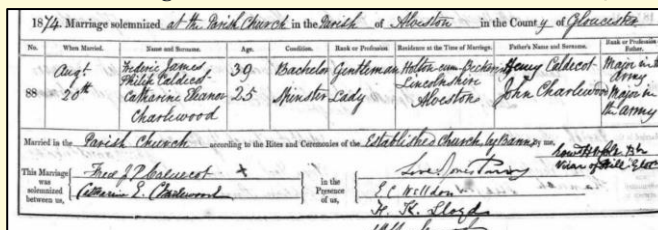 1874. Marriage solemnized at the Parish Church in the Parish of Alveston in the County of Gloucester
No. When Married. Name and Surname. Age. Condition. Rank or Profession. Residence at the Time of Marriage. Father's Name and Surname. Rank or Profession of Father.
88 Augt 20th
Frederic James Philip Caldecot 39 Bachelor Gentleman Holton cum Beckering Lincolnshire Henry Caldecot Major in the Army
Catharine Eleanor Charlewood 25 Lady Alveston John Charlewood Major in the Army
Married in the Parish Church according to the Rites and Ceremonies of the Established Church by Banns by me,
Vicar of Hill
This Marriage was solemnized between us,
Fred J P Caldecot
Catharine E. Charlewood
in the Presence of us,
Love Jones Parry
E C Welldon
H. K. Lloyd